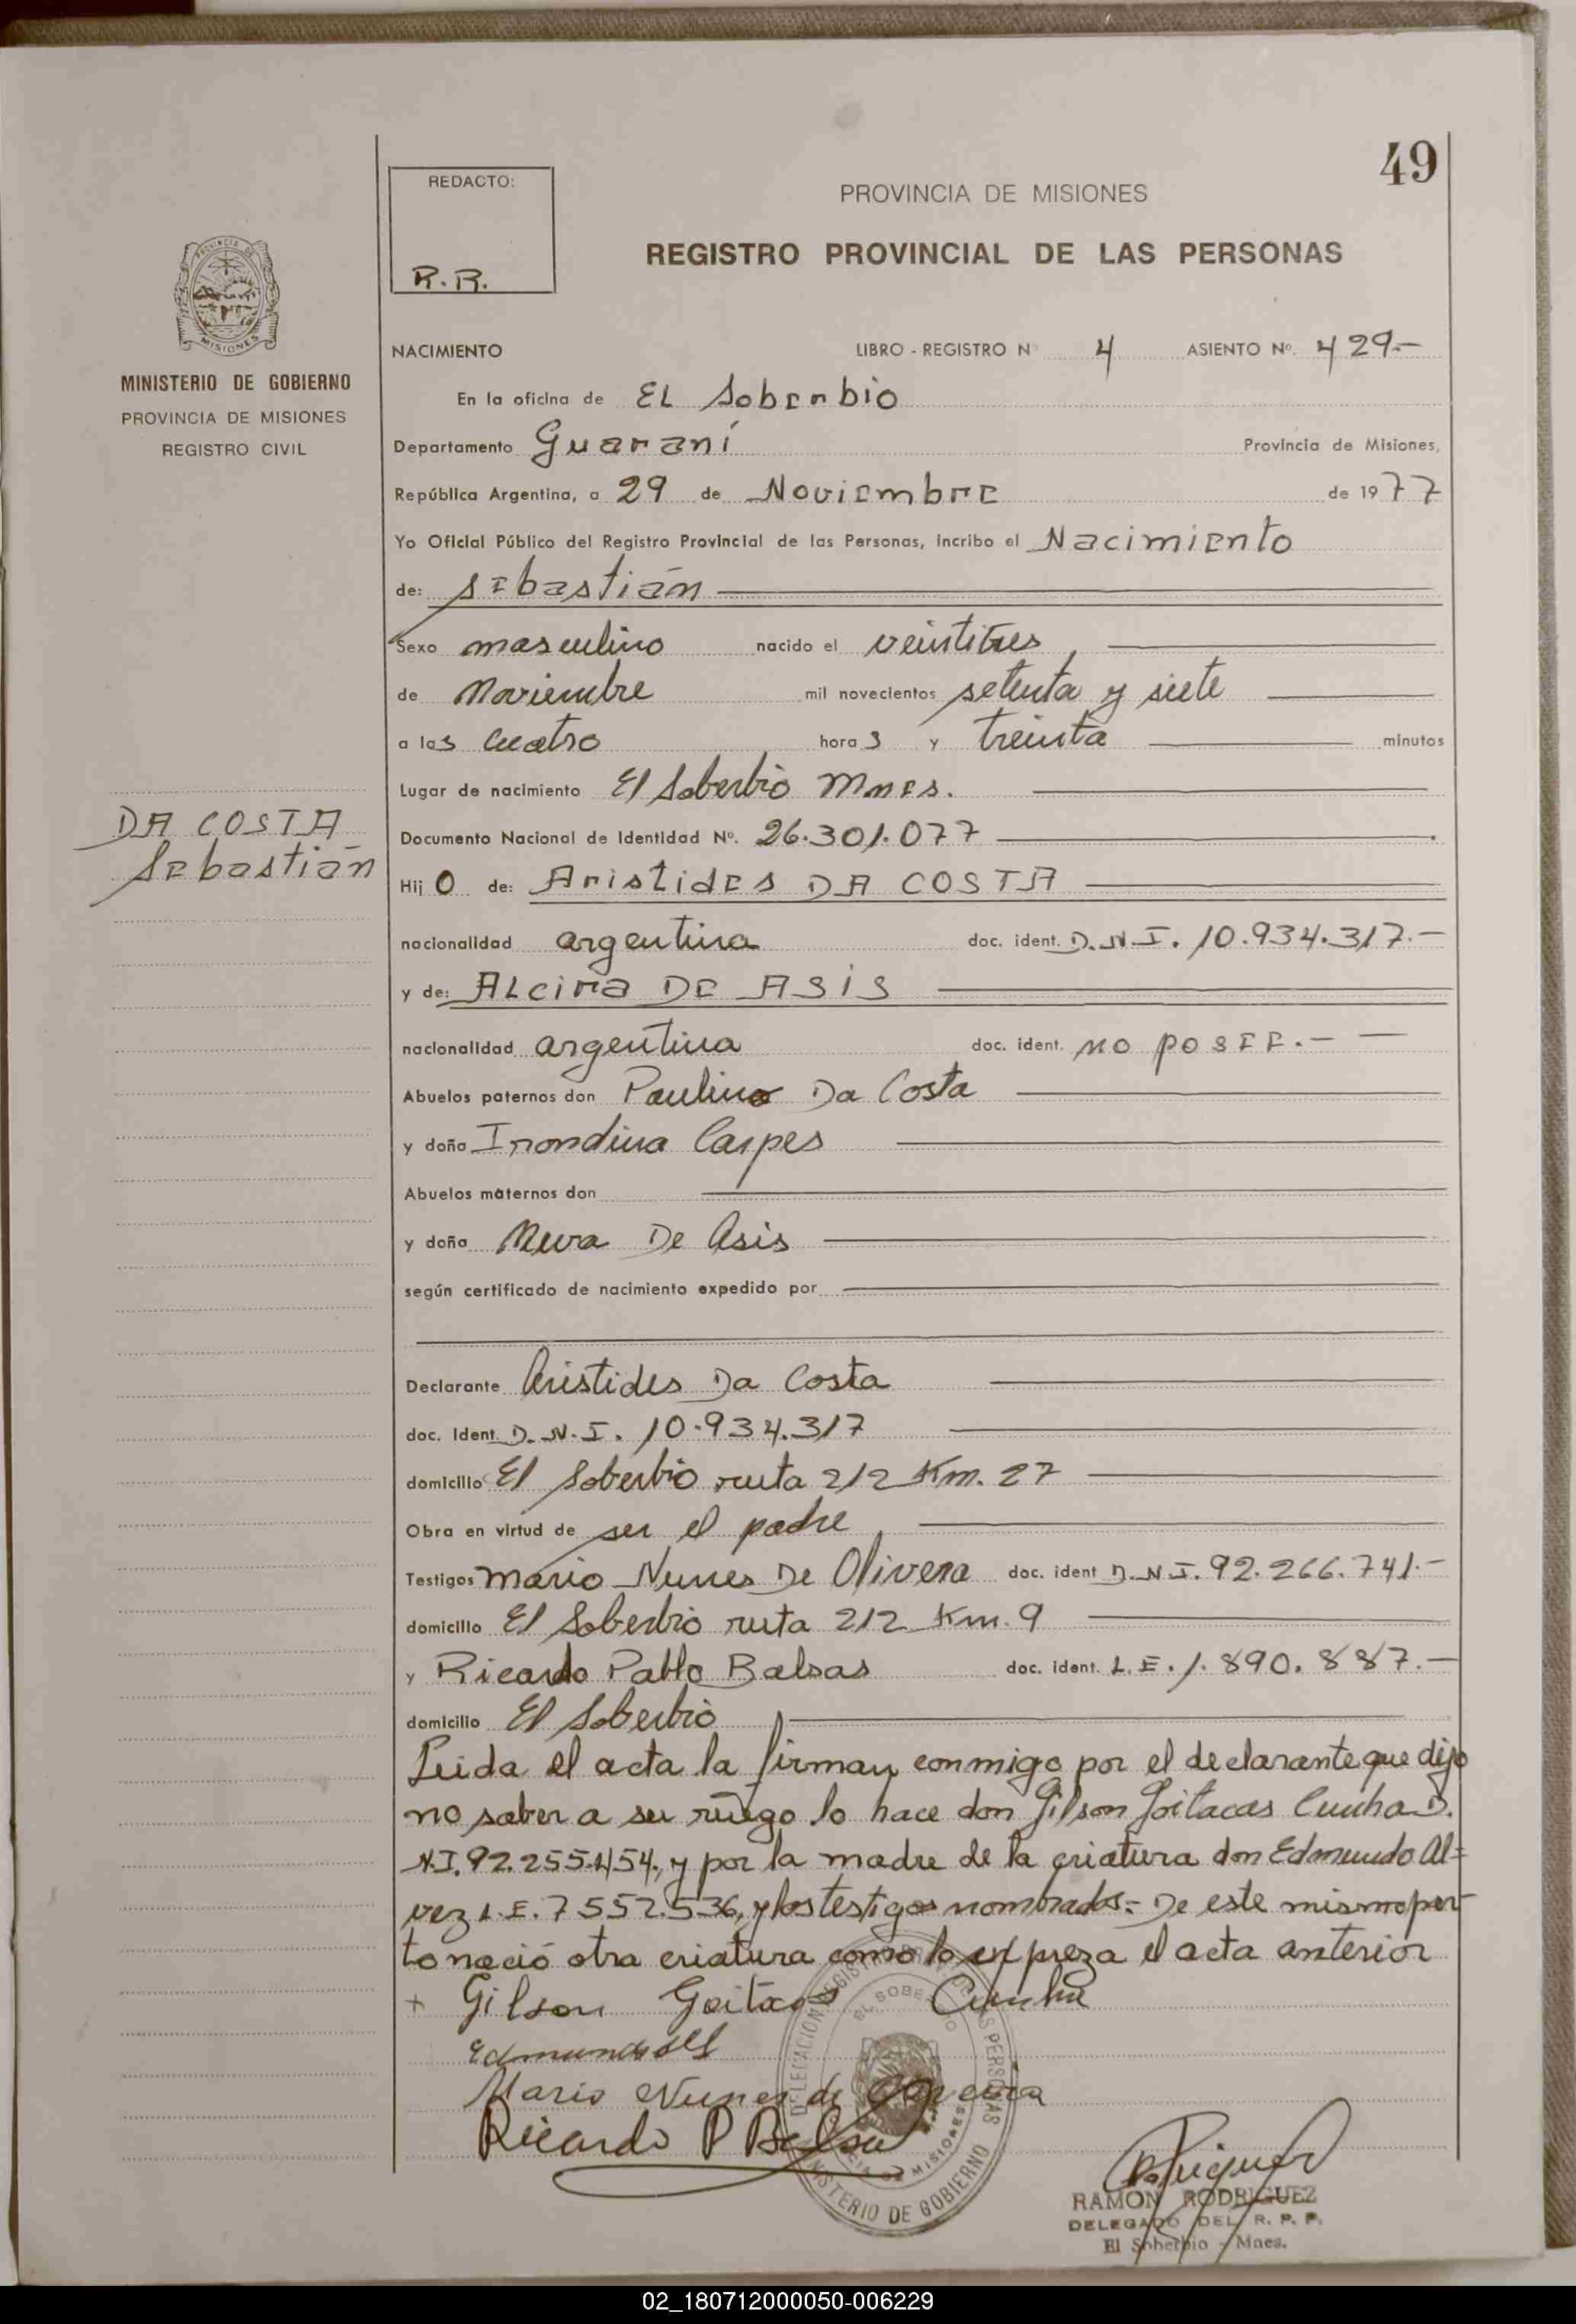 49
REDACTO:
R.R.
PROVINCIA DE MISIONES
REGISTRO PROVINCIAL DE LAS PERSONAS
MISIONES
MINISTERIO DE GOBIERNO
PROVINCIA DE MISIONES
REGISTRO CIVIL
NACIMIENTO LIBRO - REGISTRO Nº 4 ASIENTO Nº 429.-
En la oficina de EL Soberbio
Departamento Guaraní Provincia de Misiones,
República Argentina, a 29 de Noviembre de 1977
Yo Oficial Público del Registro Provincial de las Personas, incribo el Nacimiento
de: Sebastián
Sexo masculino nacido el veintitres
de Noviembre mil novecientos setenta y siete
a las cuatro horas y treinta minutos
Lugar de nacimiento El Soberbio Mnes.
Documento Nacional de Identidad Nº. 26.301.077
DA COSTA
Sebastián
Hijo de: Aristides DA COSTA
nacionalidad argentina doc. ident. D.N.I. 10.934.317.-
y de: ALcira DE ASIS
nacionalidad argentina doc. ident. no poseE.-
Abuelos paternos don Paulino Da Costa
y doña Irondina Carpes
Abuelos maternos don
y doña De Asis
según certificado de nacimiento expedido por
Declarante Aristides Da Costa
doc. Ident. D.N.I. 10.934.317
domicilio El Soberbio ruta 212 Km. 27
Obra en virtud de ser el padre
Testigos Mario Nunes De Olivera doc. ident D.N.I. 92.266.741.-
domicilio El Soberbio ruta 212 Km. 9
y Ricardo Pablo Balsas doc. ident. L.E. 1.890.887.-
domicilio El Soberbio
Leida el acta la firman conmigo por el declarante que dijo
no saber a su ruego lo hace don Gilson Goitacas Cunha D.
N.I. 92.255.454, y por la madre de la criatura don Edmundo Al=
vez L.E. 7.552.536, y los testigos nombrados.- De este mismo par-
to nació otra criatura como lo expreza el acta anterior
+ Gilson Goitacas Cunha
Mario Nunes de Oliveira
Ricardo P Balsa
DELEGACION REGISTRO PROVINCIAL DE LAS PERSONAS
EL SOBERBIO
PROVINCIA DE MISIONES
MINISTERIO DE GOBIERNO
RAMON RODRIGUEZ
DELEGADO DEL R. P. P.
El Soberbio - Mnes.
02_180712000050-006229